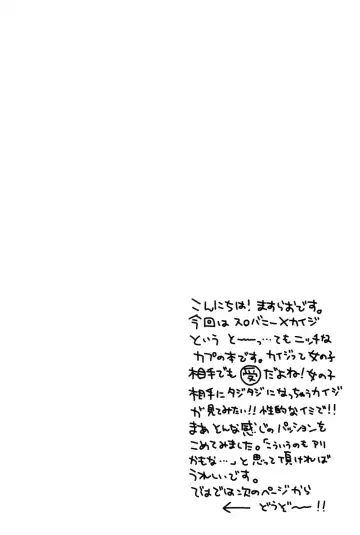 こんにちは!ますらおです。
今回は スロバニー×カイジ
という と〜っ…てもニッチな
カプの本です。カイジって女の子
相手でも 受 だよね!女の子
相手にタジタジになっちゃうカイジ
が見てみたい!!性的なイミで!!
まあ とんな感じのパッションを
こめてみました。「こういうのも アリ
かもな…」と思って頂ければ
うれしいです。
ではでは次のページから
← どうぞ〜!!